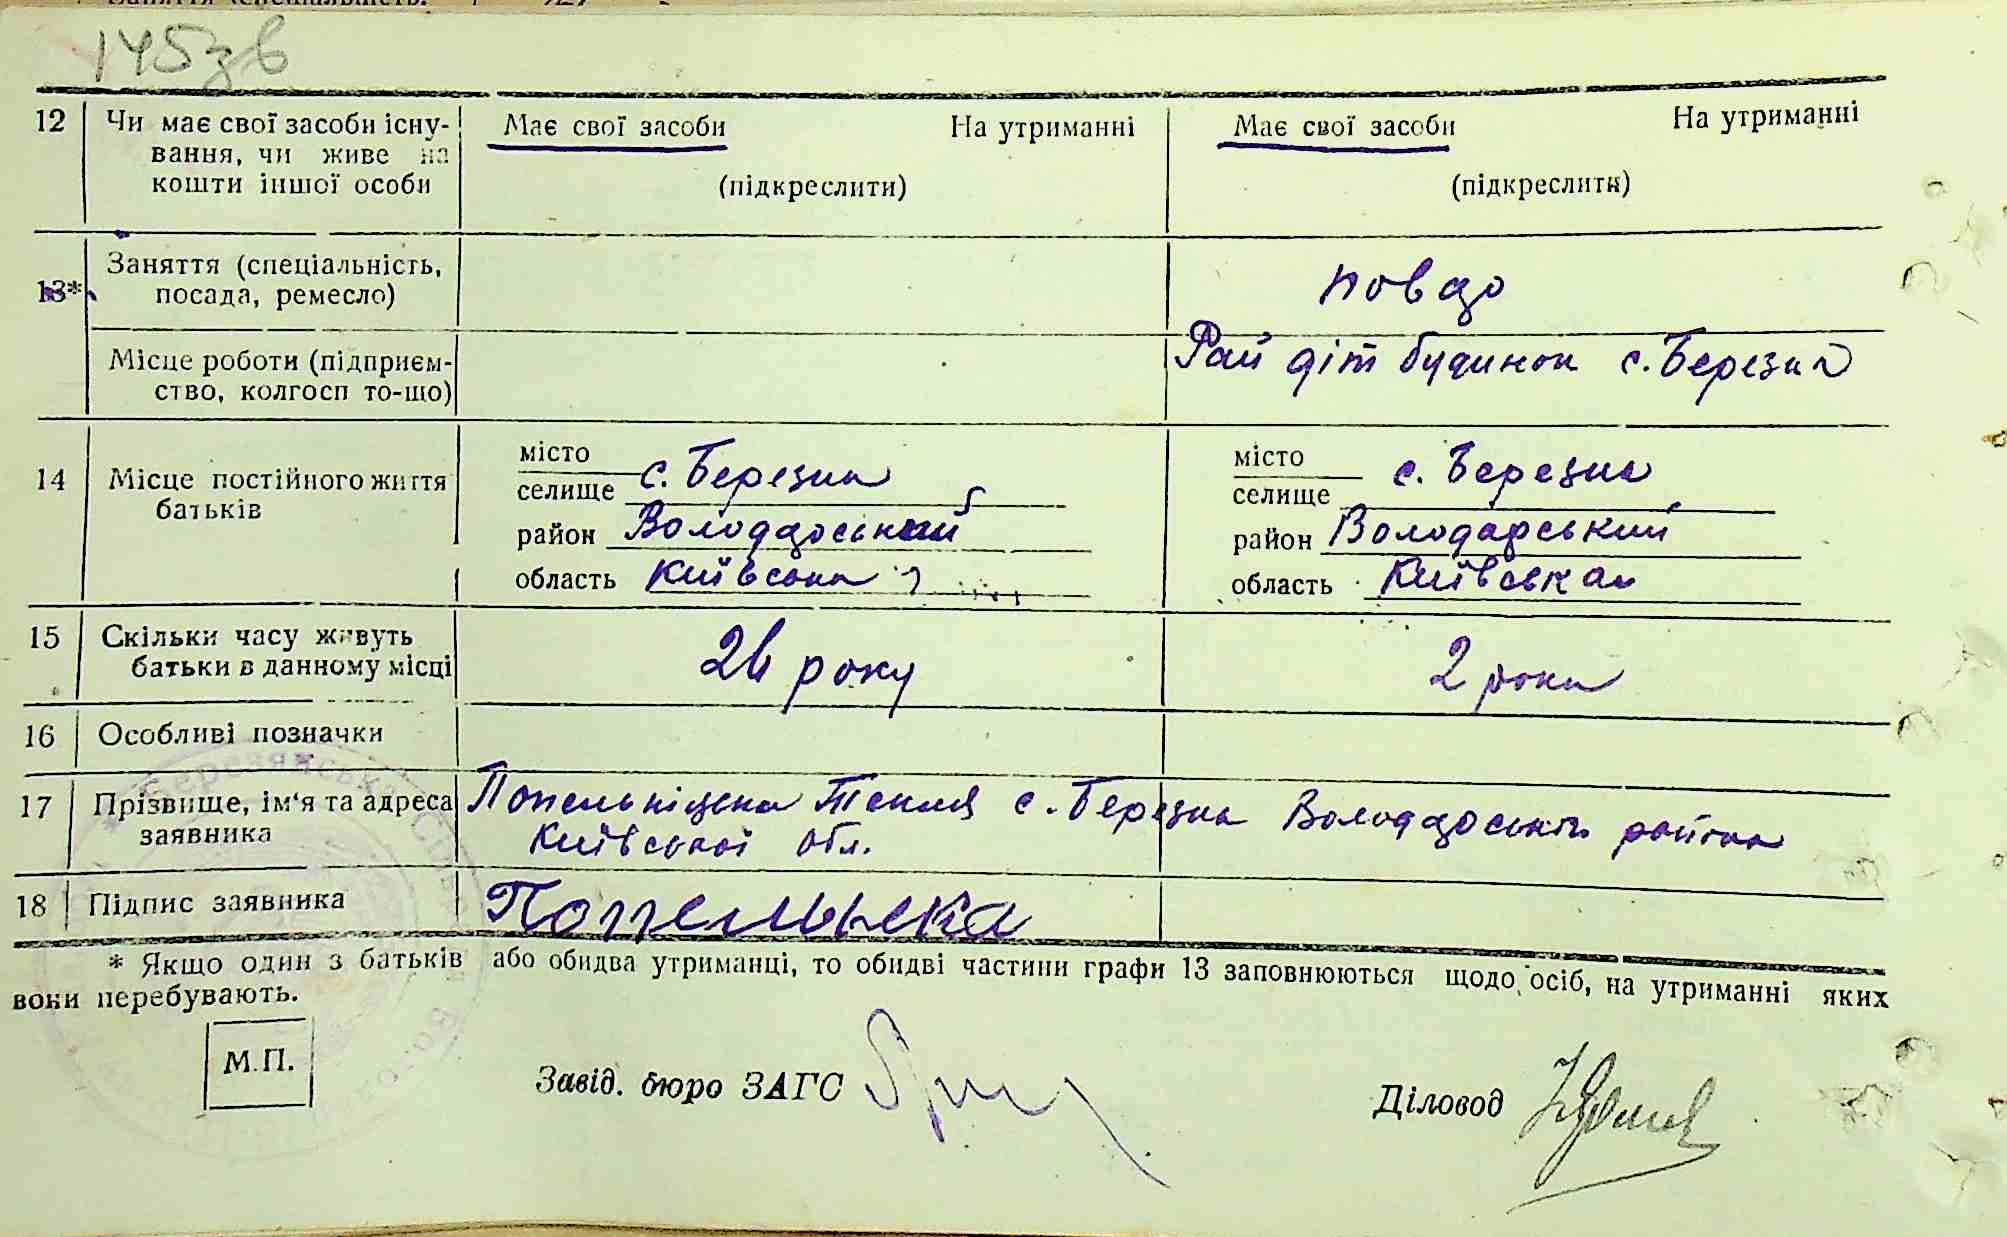 145зв
12 Чи має свої засоби існу-
вання, чи живе на
кошти іншої особи
Має свої засоби На утриманні
(підкреслити)
Має свої засоби На утриманні
(підкреслити)
13* Заняття (спеціальність,
посада, ремесло)
повар
Місце роботи (підприєм-
ство, колгосп то-що)
Рай діт будинок с. Березна
14 Місце постійного життя
батьків
місто
селище с. Березна
район Володарський
область Київська
місто
селище с. Березна
район Володарський
область Київська
15 Скільки часу живуть
батьки в данному місці
року
2 роки
16 Особливі позначки
17 Прізвище, ім'я та адреса
заявника
Текля с. Березна Володарськ району
Київської обл.
18 Підпис заявника
* Якщо один з батьків або обидва утриманці, то обидві частини графи 13 заповнюються щодо осіб, на утриманні яких
вони перебувають.
М.П.
Завід. бюро ЗАГС
Діловод